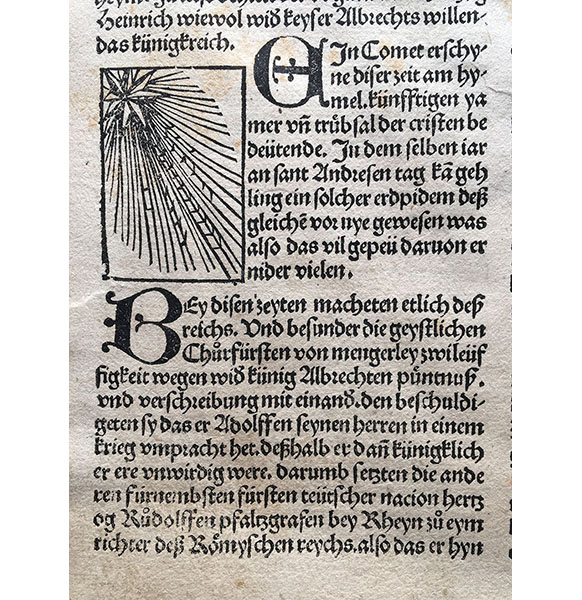 Heinrich wiewol wid keyser Albrechts willen
das künigkreich.
EIn Comet erschy-
ne diser zeit am hy-
mel. künfftigen ya
mer vñ trůbsal der cristen be
deütende. In dem selben iar
an sant Andresen tag kã geh
ling ein solcher erdpidem deß
gleichẽ vor nye gewesen was
also das vil gepeü daruon er
nider vielen.
BEy disen zeyten macheten etlich deß
reichs. Vnd besunder die geystlichen
Chůrfürsten von mengerley zwileüf
figkeit wegen wid künig Albrechten püntnuß.
vnd verschreibung mit einand. den beschuldi-
geten sy das er Adolffen seynen herren in einem
krieg vmpracht het. deßhalb er dañ künigklich
er ere vnwirdig were. darumb setzten die ande
ren furnembsten fürsten teütscher nacion hertz
og Růdolffen pfaltzgrafen bey Rheyn zů eym
richter deß Römyschen reychs. also das er hyn